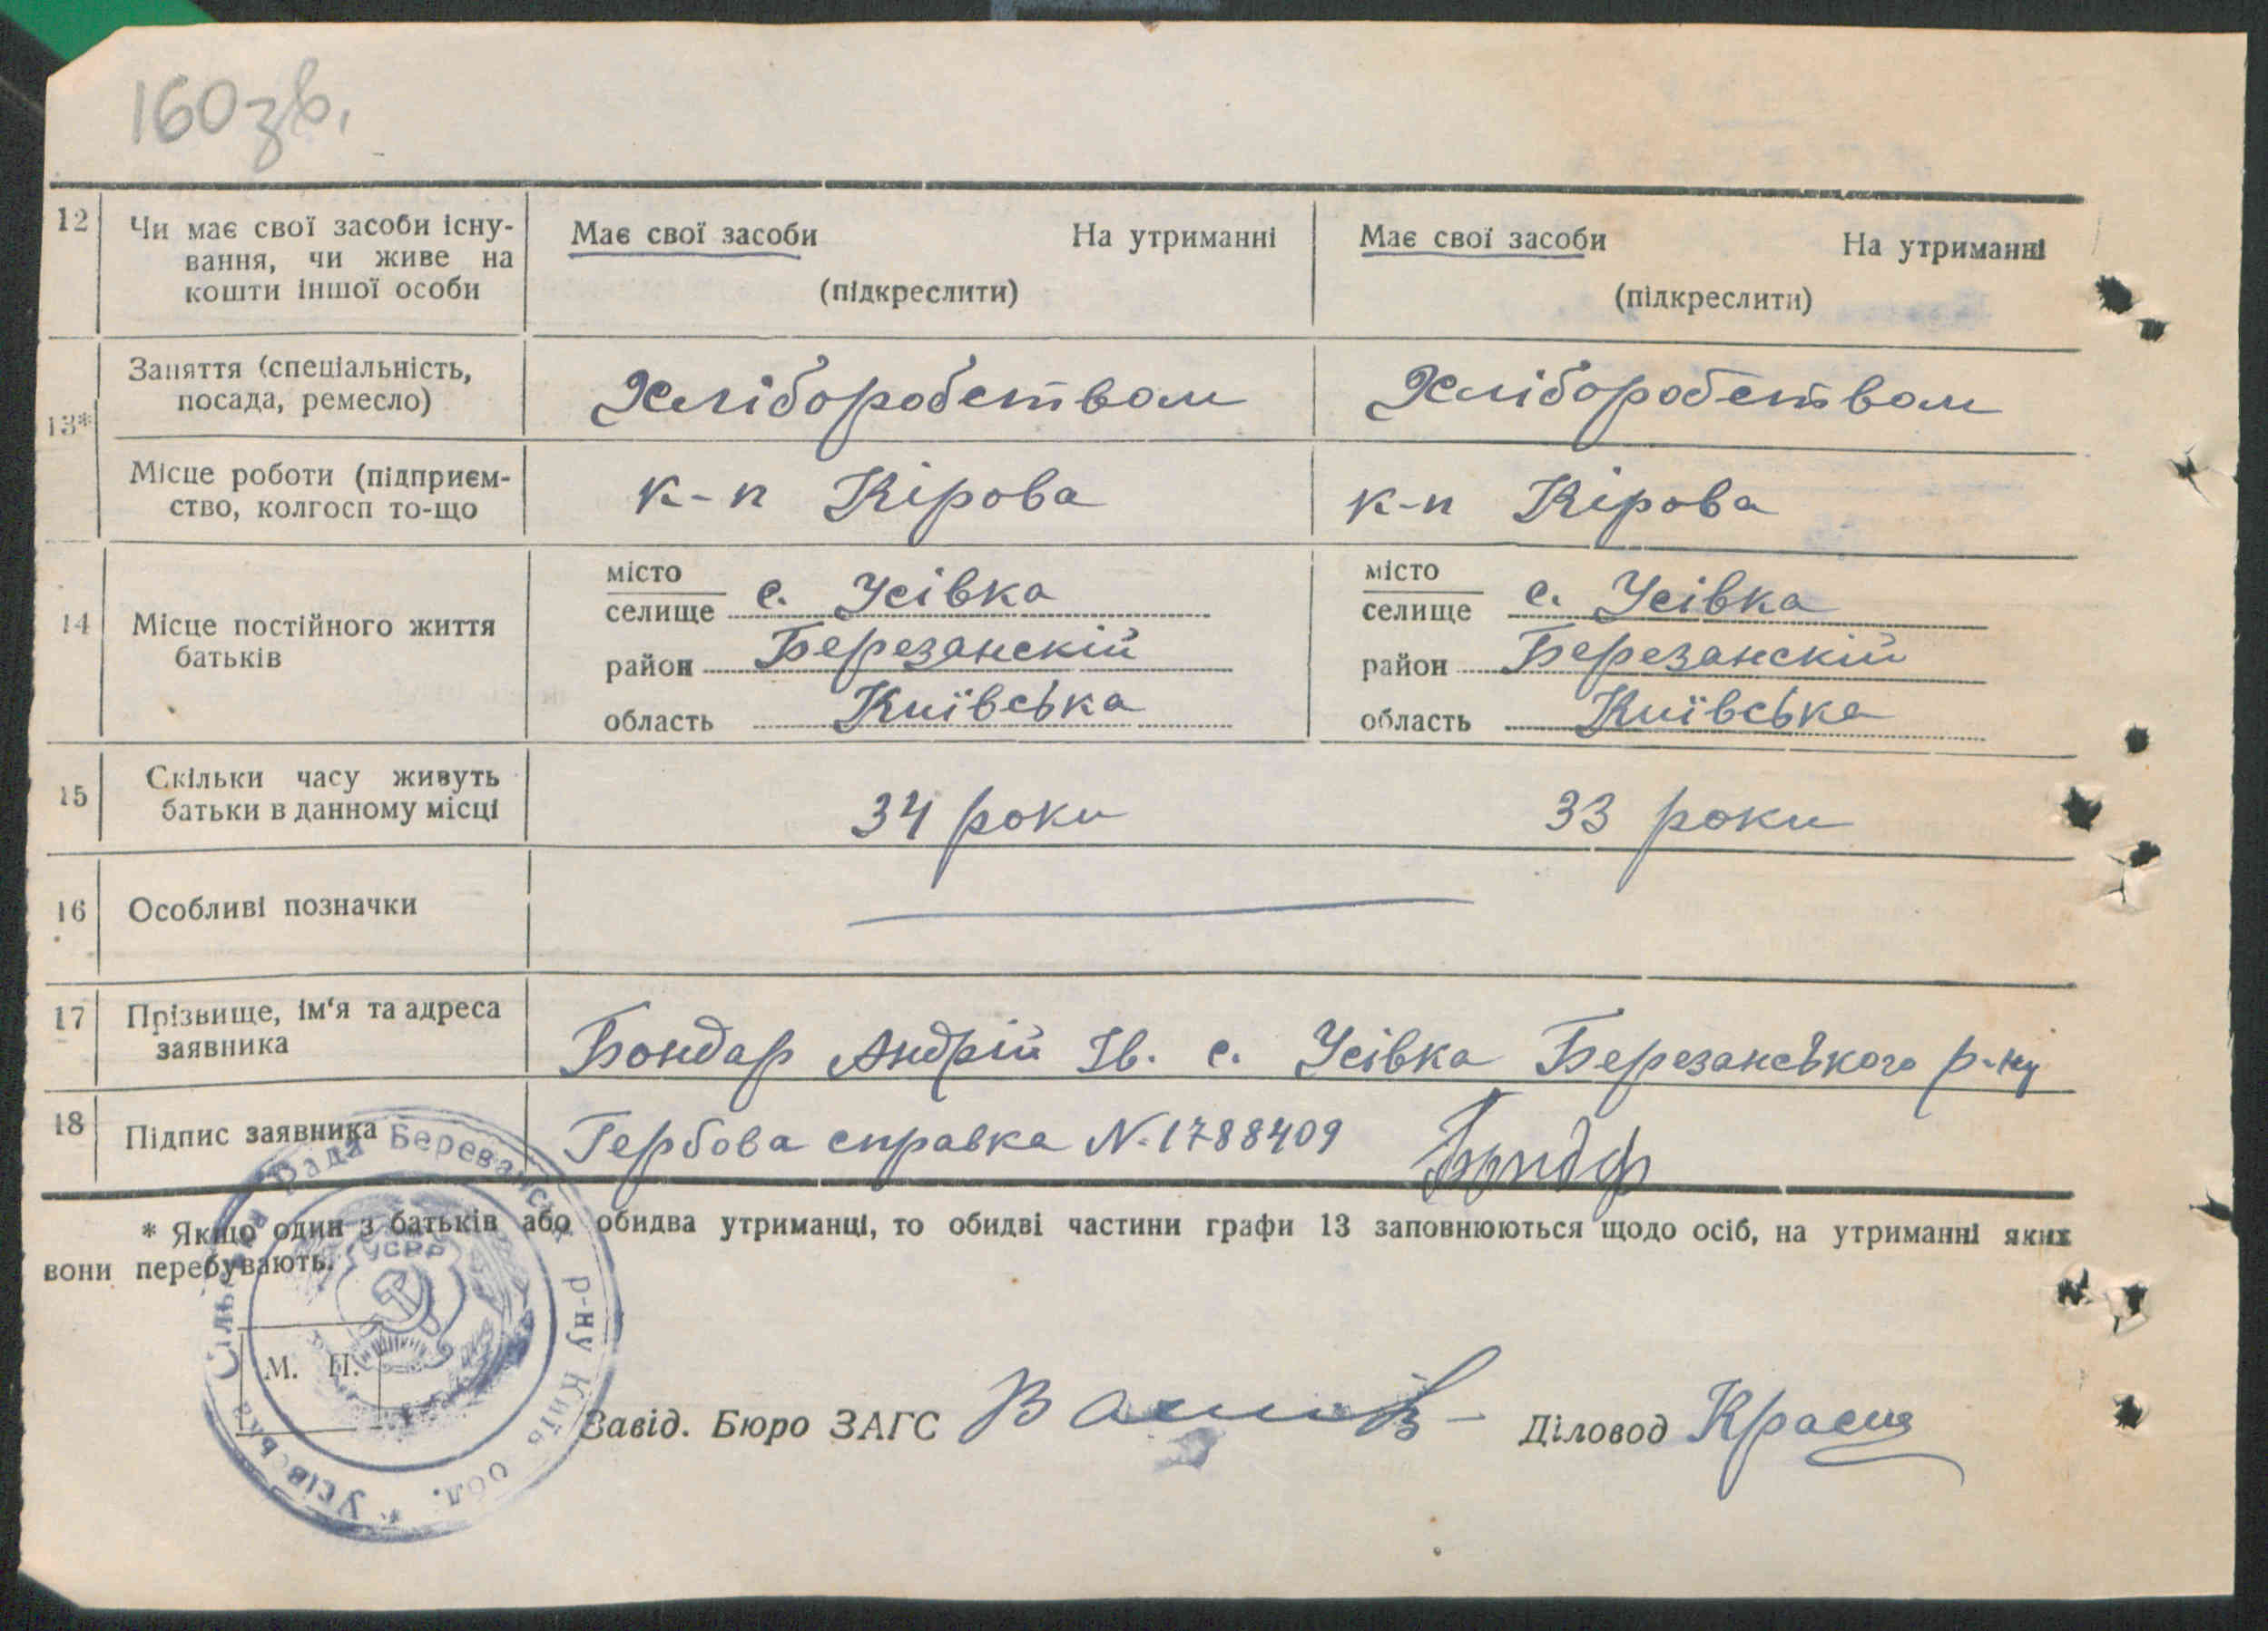 160 зв.
12 Чи має свої засоби існу-
вання, чи живе на
кошти іншої особи
Має свої засоби На утриманні
(підкреслити)
Має свої засоби На утриманні
(підкреслити)
13* Заняття (спеціальність,
посада, ремесло)
Хліборобством
Хліборобством
Місце роботи (підприєм-
ство, колгосп то-що
к-п Кірова
к-п Кірова
14 Місце постійного життя
батьків
місто
селище с. Усівка
район Березанскій
область Київська
місто
селище с. Усівка
район Березанскій
область Київська
15 Скільки часу живуть
батьки в данному місці
34 роки
33 роки
16 Особливі позначки
17 Прізвище, ім‘я та адреса
заявника
Бондар Андрій Ів. с. Усівка Березанського р-ну
18 Підпис заявника
Гербова справка N. 1788409
* Якщо один з батьків або обидва утриманці, то обидві частини графи 13 заповнюються щодо осіб, на утриманні яких
вони перебувають.
Усівська Сільська Рада Березанськ р-ну Київ обл.
УСРР
М. П.
Завід. Бюро ЗАГС
Діловод